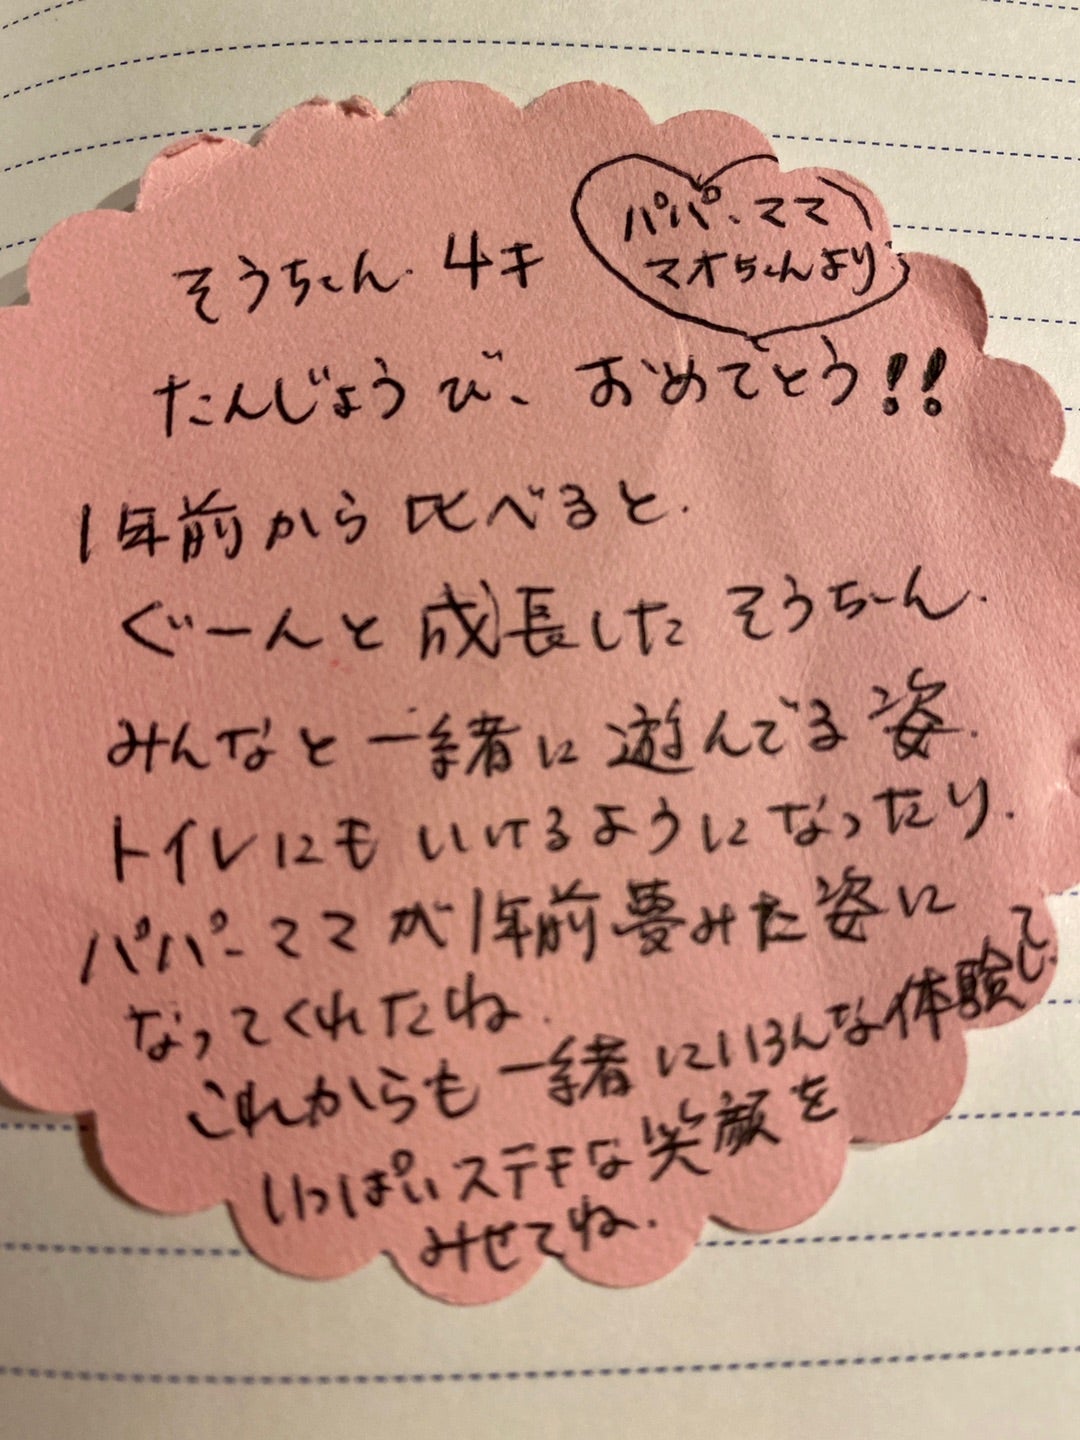 そうちゃん.4才
パパ、ママ
マオちゃんより
たんじょうび、おめでとう!!
1年前から比べると、
ぐーんと成長したそうちゃん.
みんなと一緒に遊んでる姿.
トイレにもいけるようになったり.
パパ、ママが1年前夢みた姿に
なってくれたね.
これからも一緒にいろんな体験して.
いっぱいステキな笑顔を
みせてね.